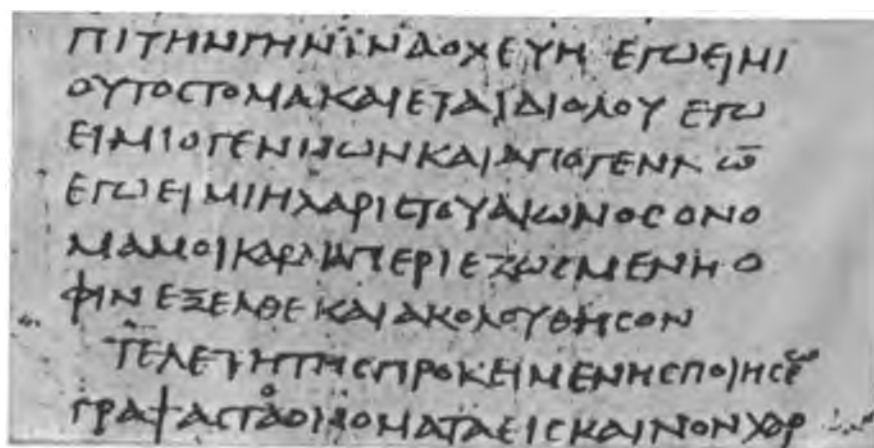 ΠΙΤΗΝΓΗΝΪΝΑΟΧΕΥΗ ΕΓΩΕΙΜΙ
ΟΥΤΟϹΤΟΜΑΚΑΙΕΤΑΙΔΙΟΛΟΥ ΕΓΩ
ΕΙΜΙΟΓΕΝΝΩΝΚΑΙΑΠΟΓΕΝΝΩ̅
ΕΓΩΕΙΜΙΗΧΑΡΙϹΤΟΥΑΙΩΝΟϹΟΝΟ
ΜΑΜΟΙΚΑΡΔΙΑΠΕΡΙΕΖΩϹΜΕΝΗΟ
ΦΙΝΕΞΕΛΘΕΚΑΙΑΚΟΛΟΥΘΗϹΟΝ
ΤΕΛΕΤΗΤΗϹΠΡΟΚΕΙΜΕΝΗϹΠΟΙΗϹΕω
ΓΡΑΨΑϹΤΑΟΝΟΜΑΤΑΕΙϹΚΑΙΝΟΝΧΑΡ